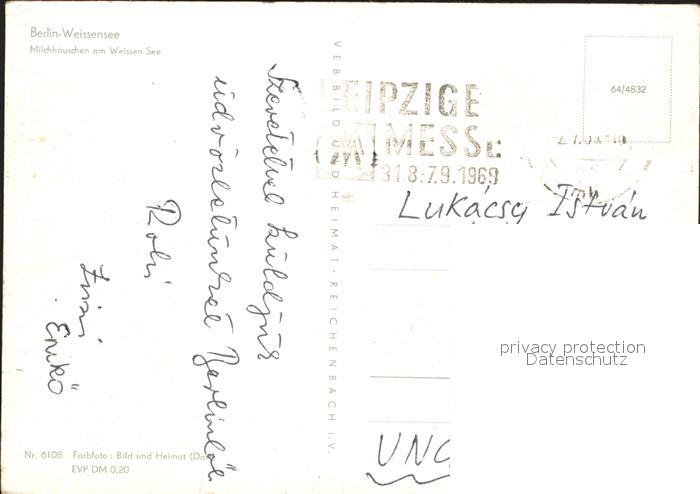 Berlin-Weissensee
Milchhäuschen am Weissen See
Szeretettel küldjük
üdvözletünket Berlinből
Robi
Zsizsi
Enikő
Nr. 6108 Farbfoto: Bild und Heimat
EVP DM 0,20
VEB BILD UND HEIMAT · REICHENBACH I.V.
64/4832
LEIPZIGE
MESSE
31.8.-7.9.1969
Lukácsy István
privacy protection
Datenschutz
UNG